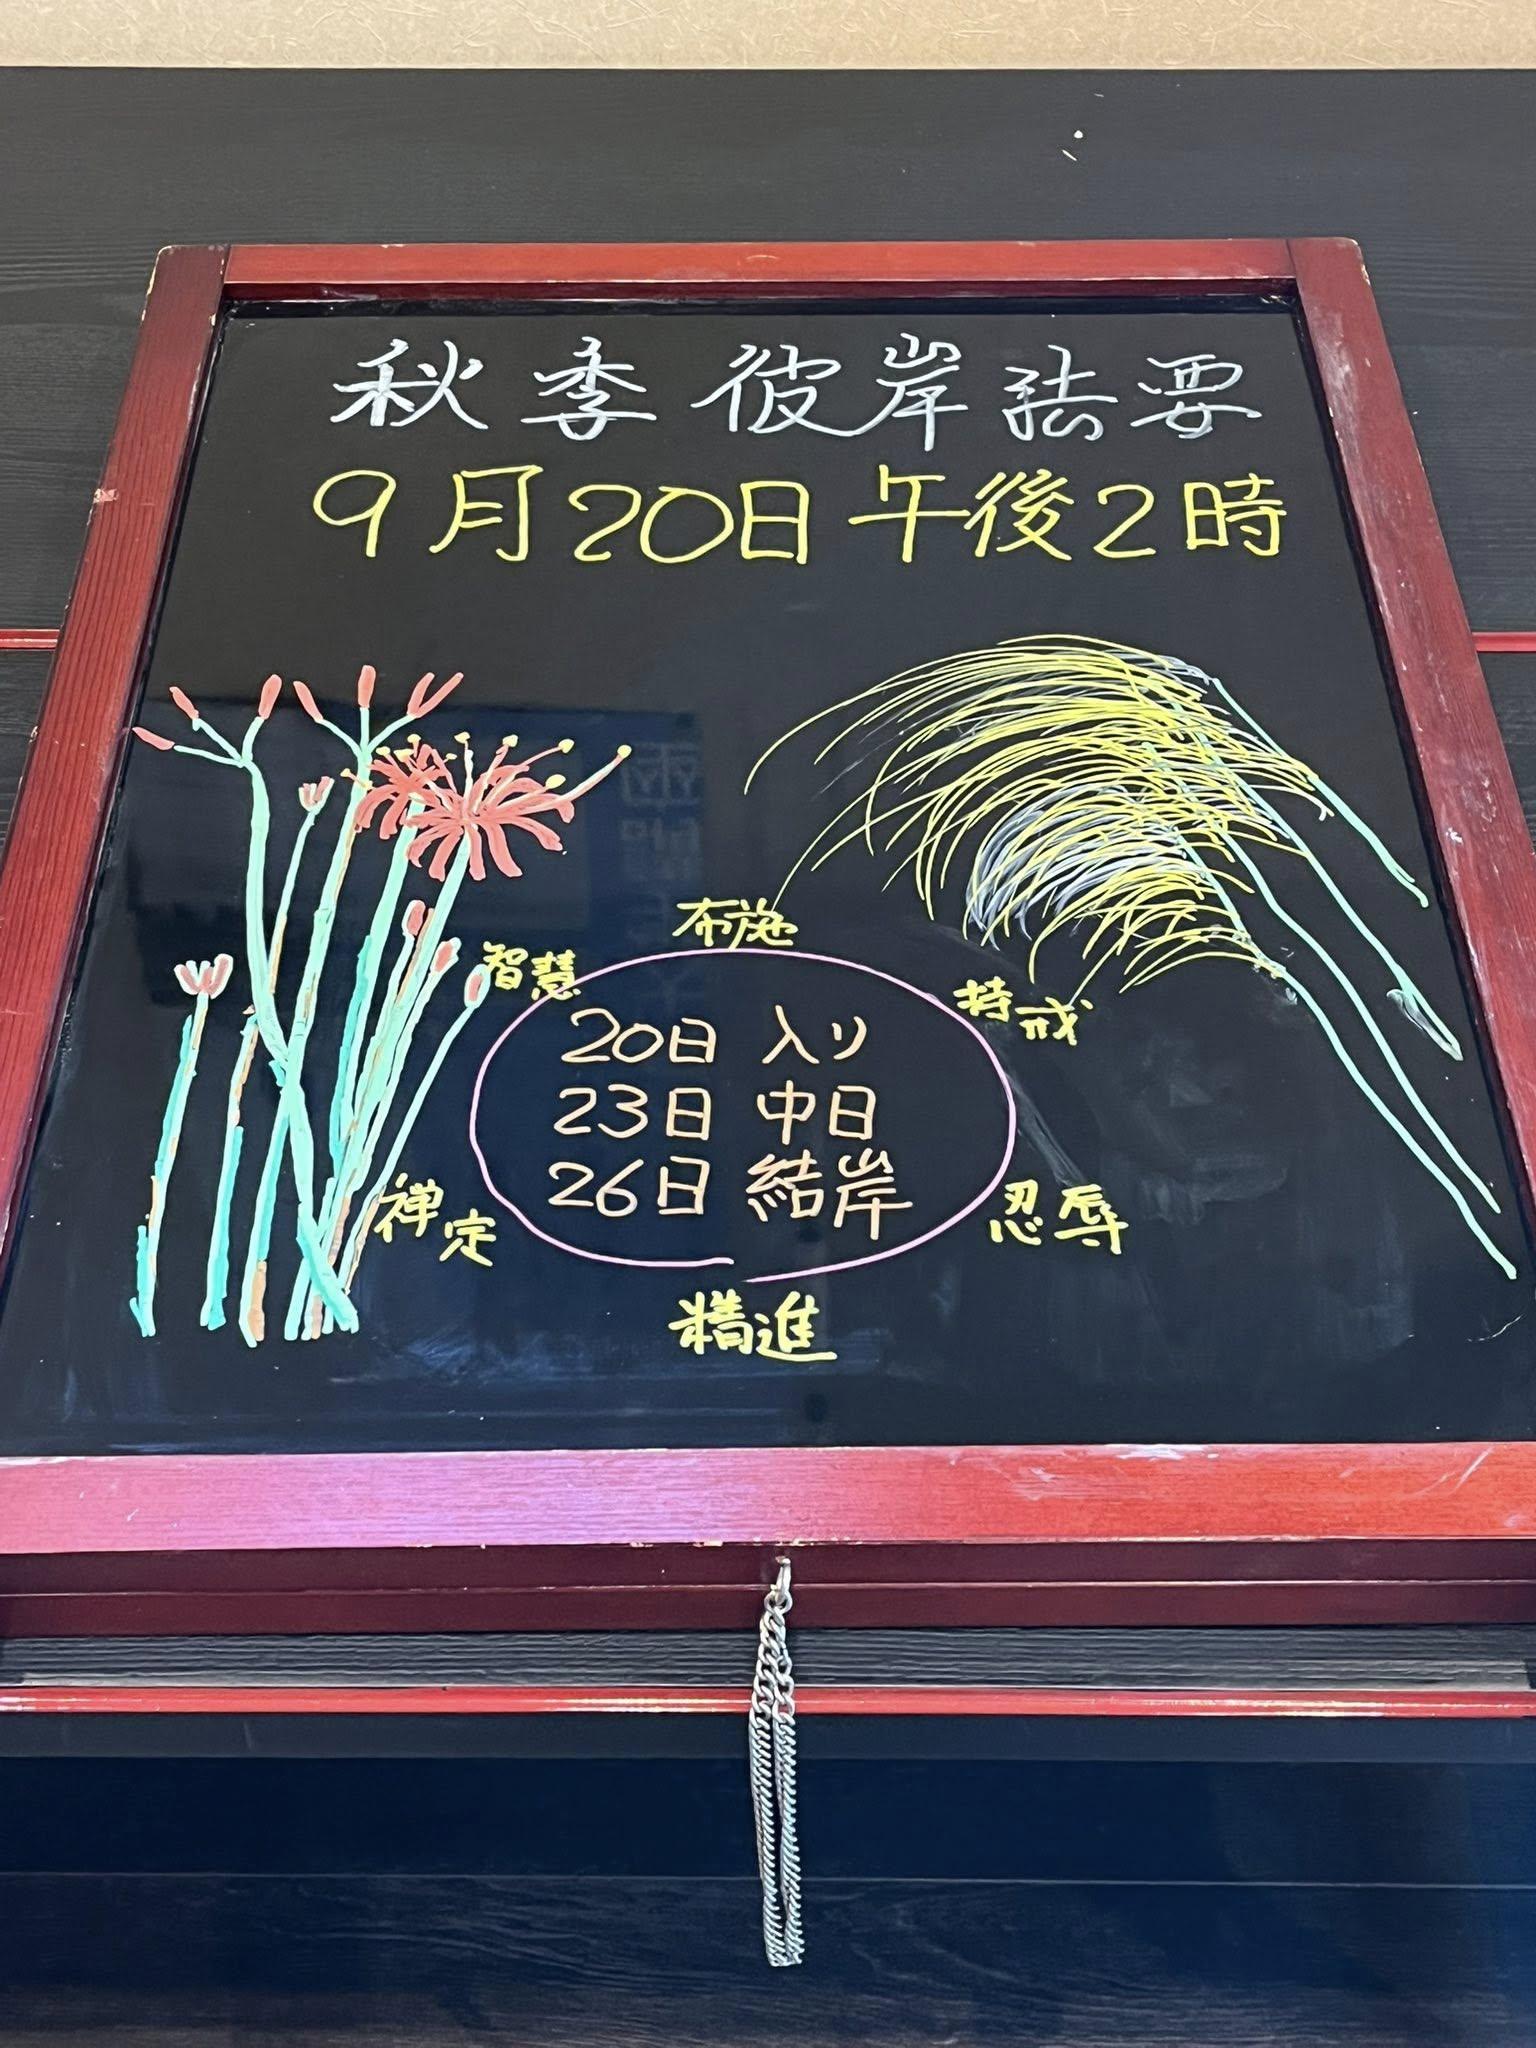 秋季彼岸法要
9月20日午後2時
布施
智慧
持戒
20日 入り
23日 中日
26日 結岸
禅定
忍辱
精進